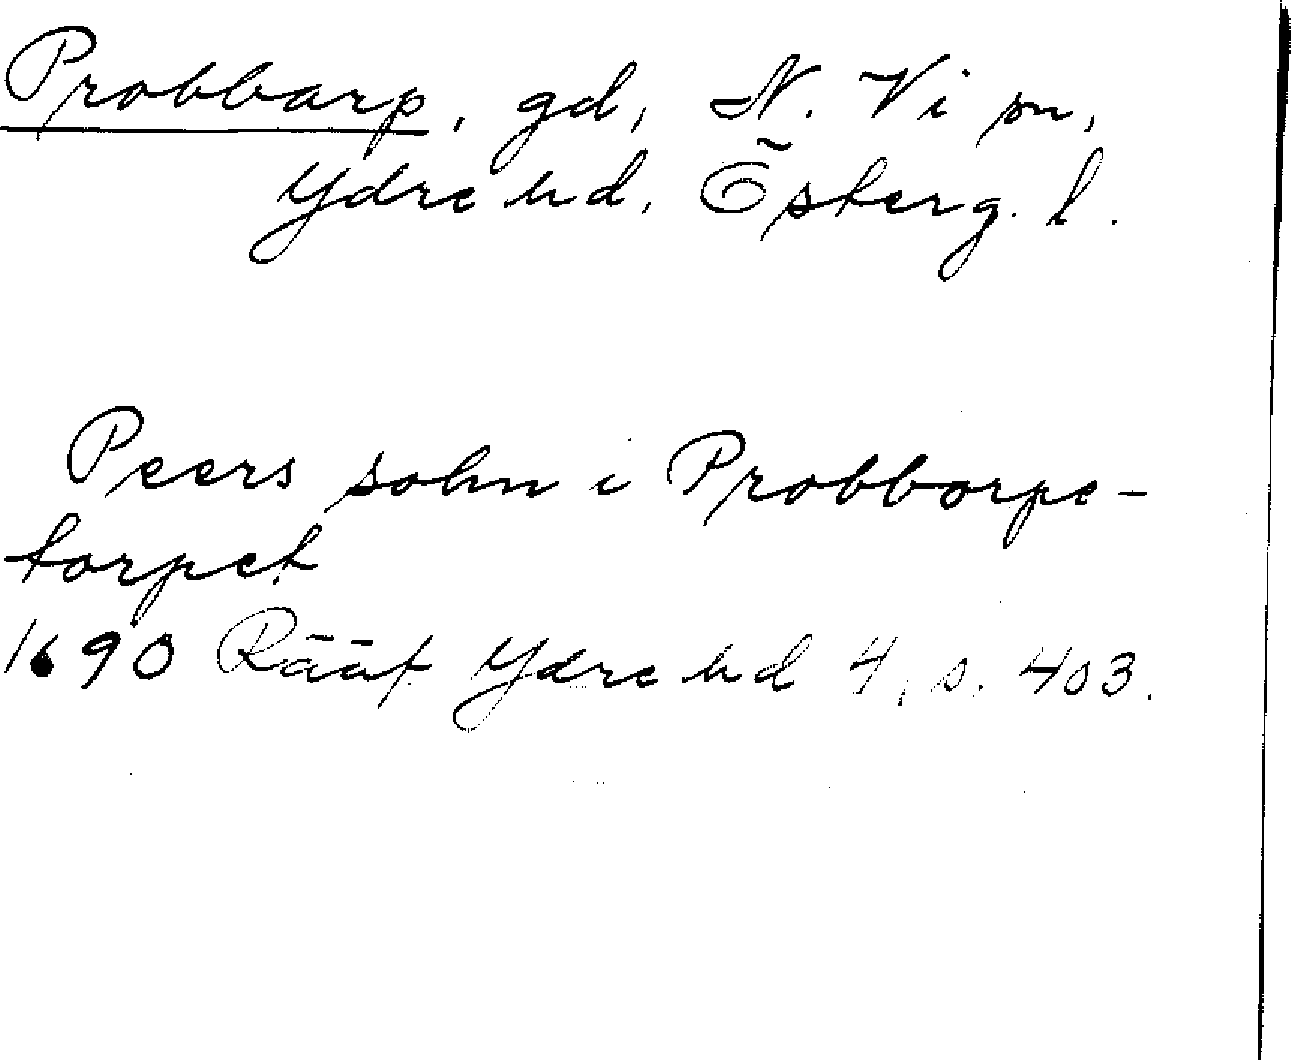 Probbarp, gd, N. Vi sn,
Ydre hd, Österg. l.
Peers sohn i Probborpe-
torpet
1690 Rääf Ydre hd 4, s. 403.